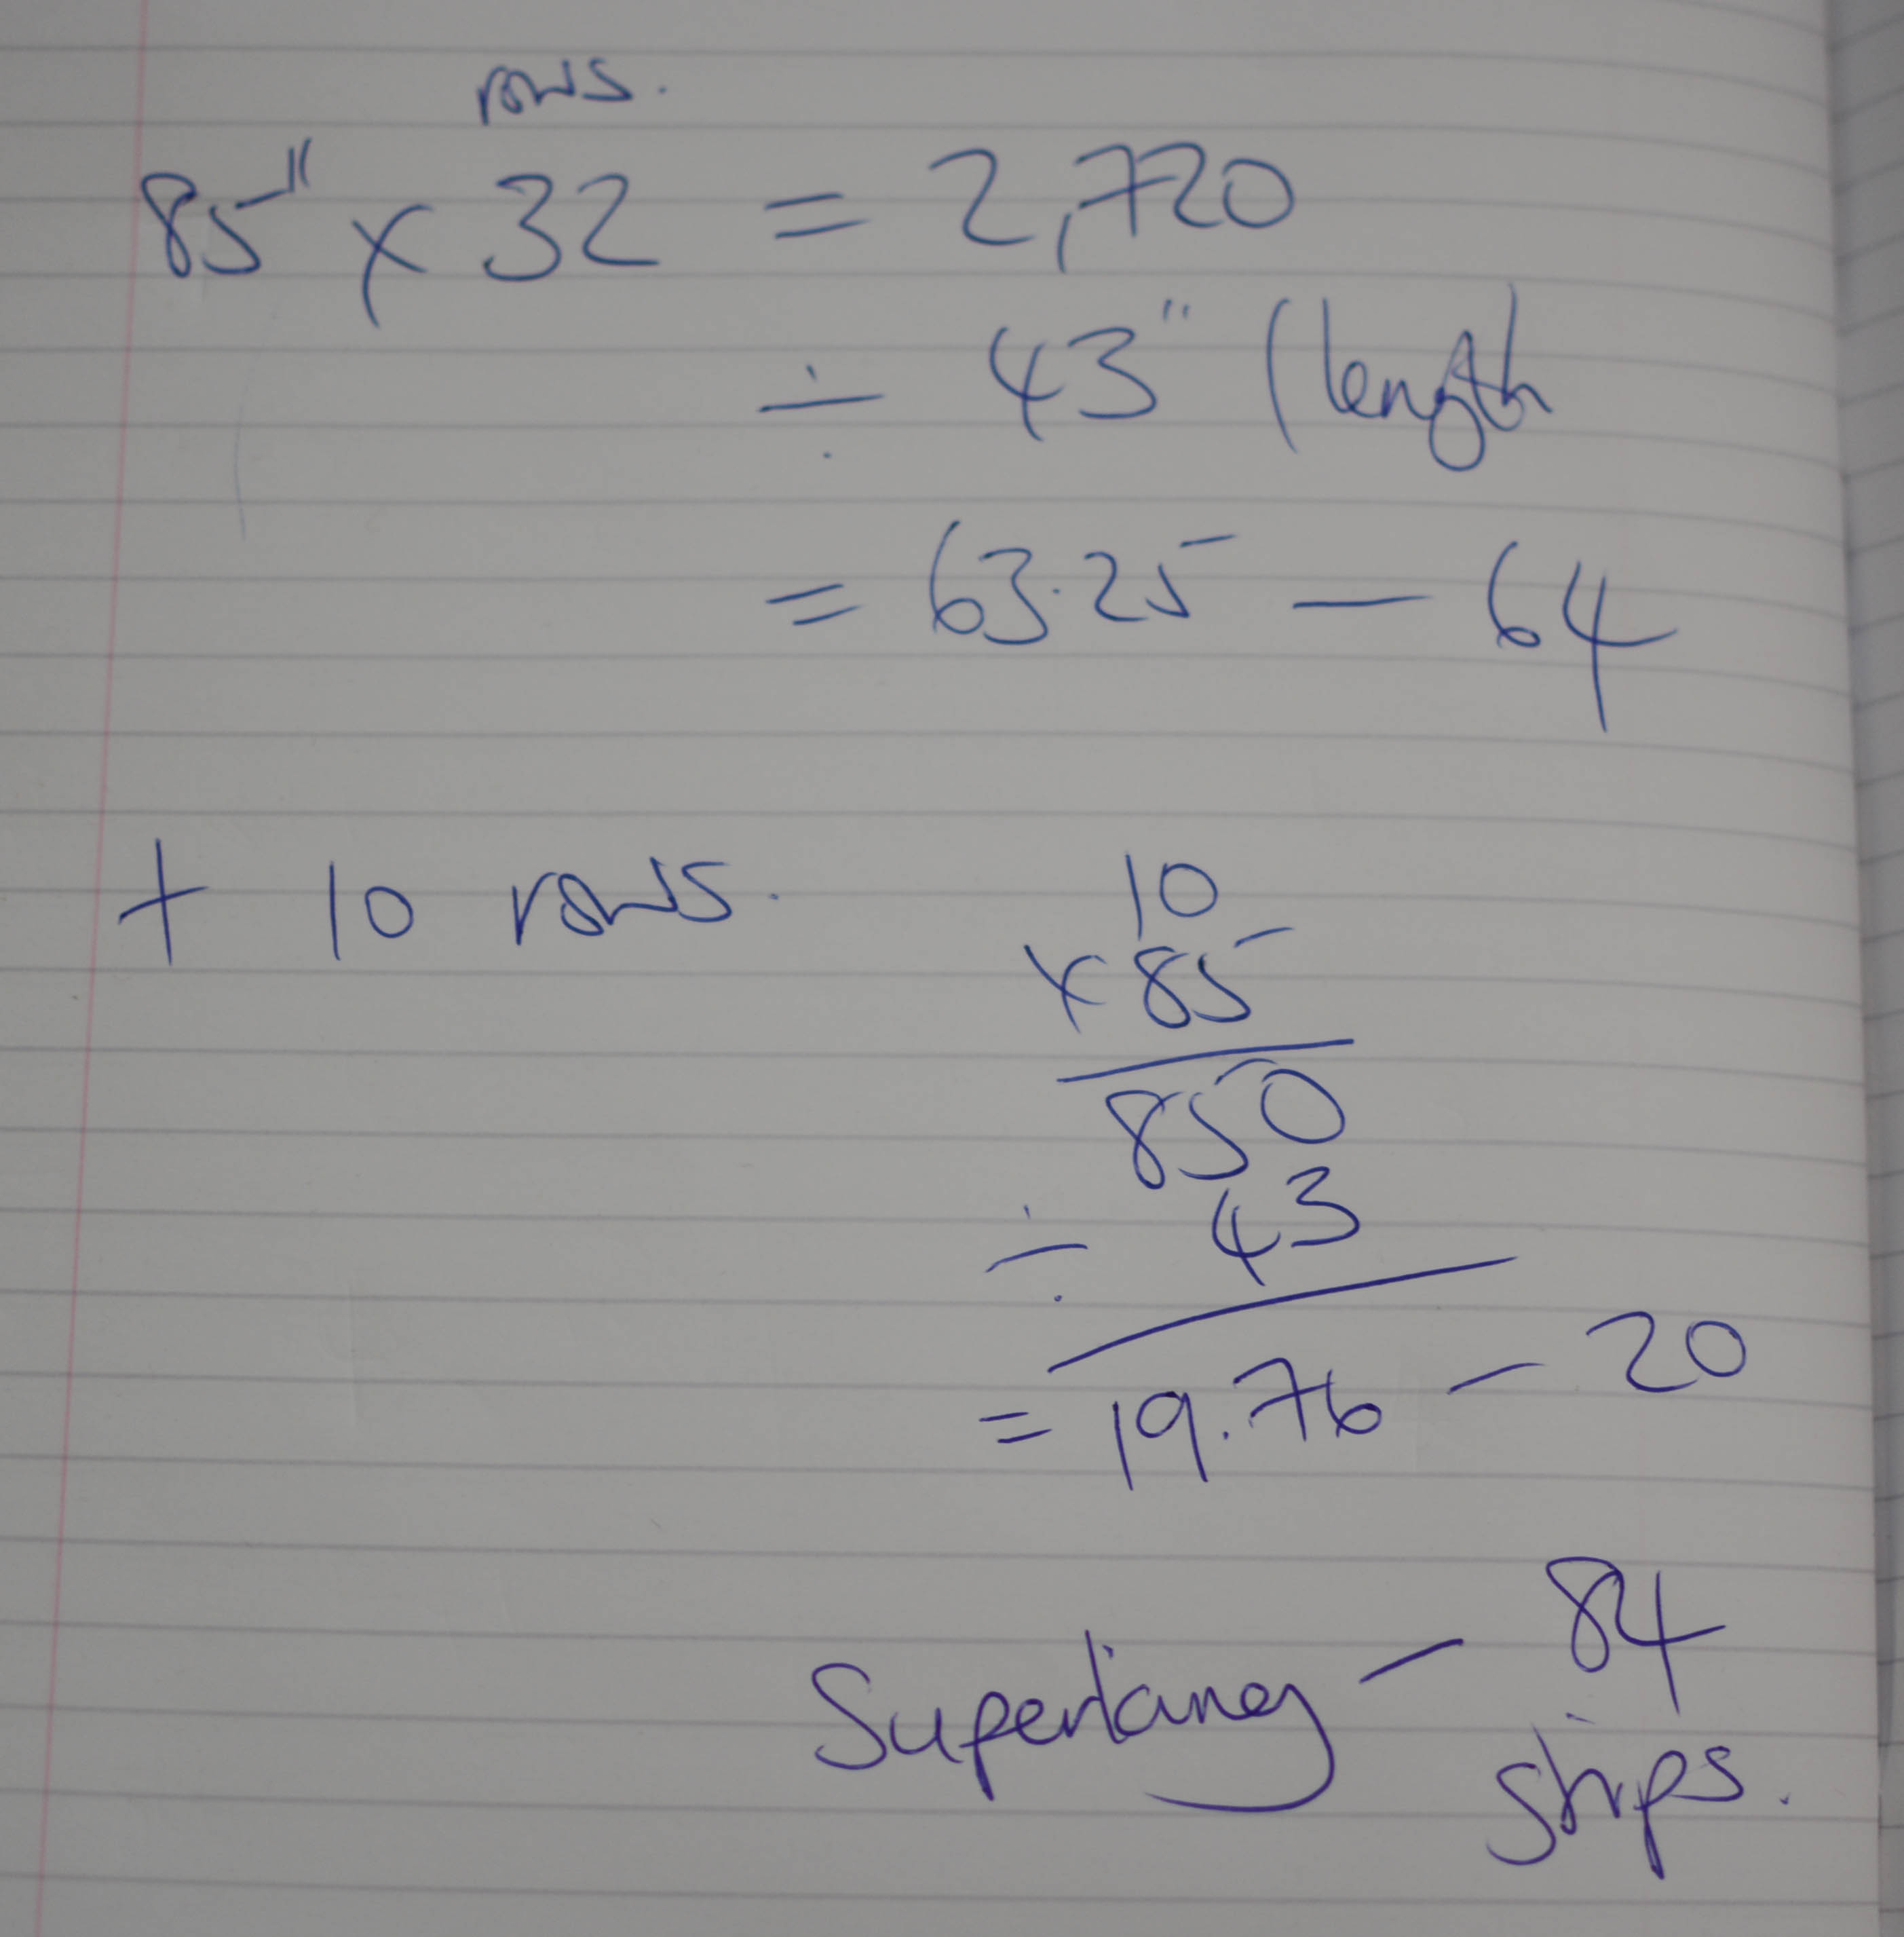 rows.
85" x 32 = 2,720
÷ 43" (length
= 63.25 — 64
+ 10 rows.
10
x 85
850
÷ 43
= 19.76 — 20
— 84
strips.